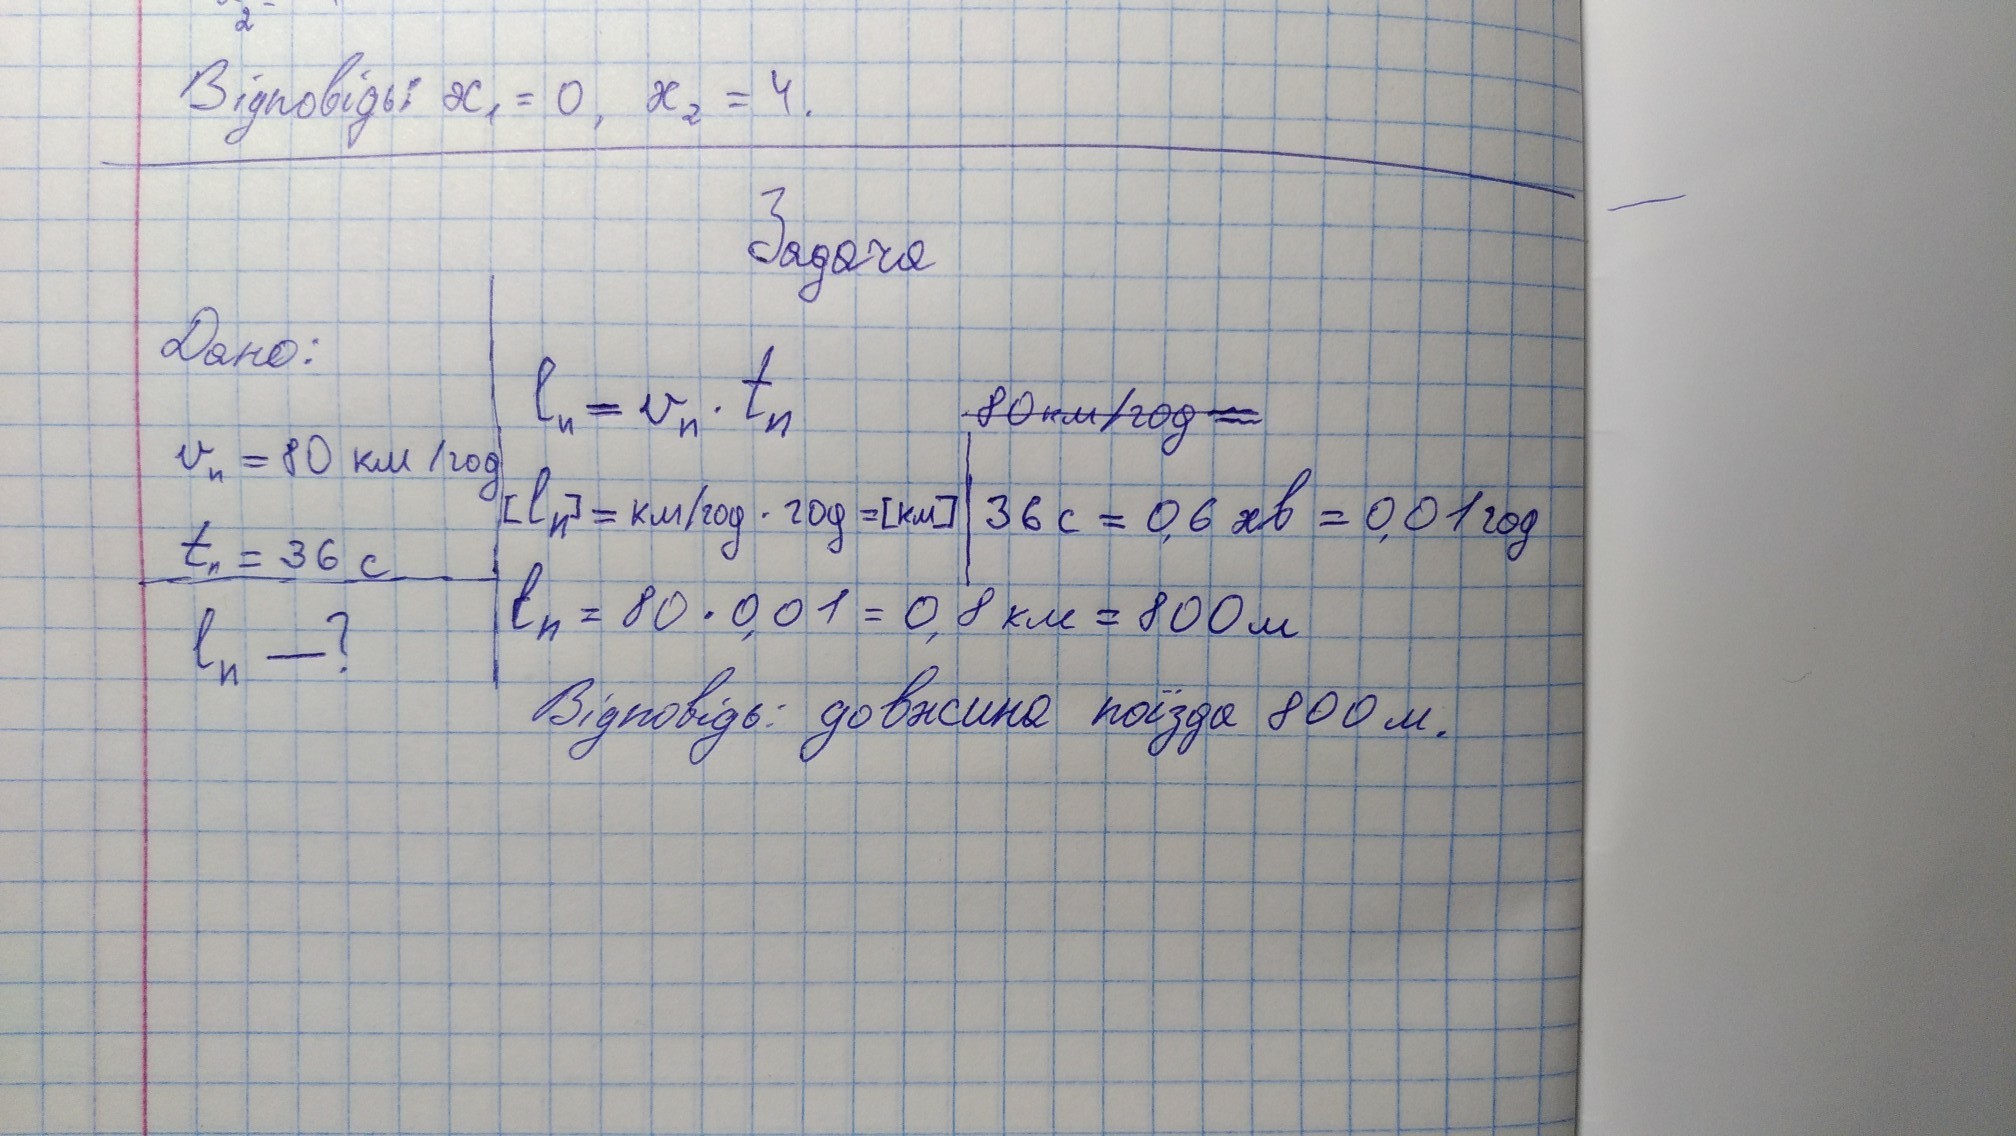 2
Відповідь: x₁ = 0, x₂ = 4.
Задача
Дано:
vₙ = 80 км/год
tₙ = 36 с
lₙ — ?
lₙ = vₙ · tₙ
80 км/год =
[lₙ] = км/год · год = [км]
36 с = 0,6 хв = 0,01 год
lₙ = 80 · 0,01 = 0,8 км = 800 м
Відповідь: довжина поїзда 800 м.